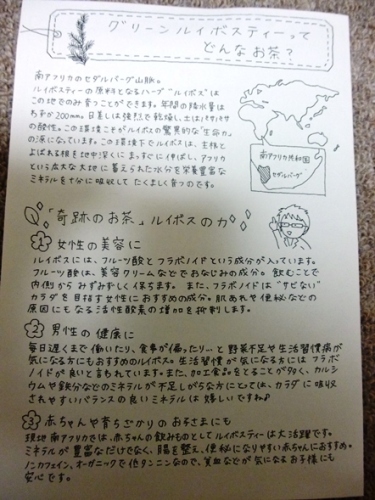 グリーンルイボスティーって
どんなお茶?
南アフリカのセダルバーグ山脈。
ルイボスティーの原料となるハーブ"ルイボス"は
この地でのみ育つことができます。年間の降水量は
わずか200mm。日差しは強烈で乾燥し、土はパサパサ
の酸性。この環境こそがルイボスの驚異的な"生命力"
の源になっています。この環境下でルイボスは、主根と
よばれる根を地中深くにまっすぐに伸ばし、アフリカ
という広大な大地に蓄えられた水分を栄養豊富な
ミネラルを十分に吸収してたくましく育つのです。
南アフリカ共和国
セダルバーグ
「奇跡のお茶」ルイボスのカ
1 女性の美容に
ルイボスには、フルーツ酸とフラボノイドという成分が入っています。
フルーツ酸は、美容クリームなどでおなじみの成分。飲むことで
内側からみずみずしく保ちます。また、フラボノイドは"サビない"
カラダを目指す女性におすすめの成分。肌あれや便秘などの
原因にもなる活性酸素の増加を抑制します。
2 男性の健康に
毎日遅くまで働いたり、食事が偏ったり…と野菜不足や生活習慣病が
気になる方にもおすすめのルイボス。生活習慣が気になる方にはフラボ
ノイドが良いと言われています。また、加工食品をとることが多く、カルシ
ウムや鉄分などのミネラルが不足しがちな方にとっては、カラダに吸収
されやすいバランスの良いミネラルは嬉しいですね♪
3 赤ちゃんや育ちざかりのお子さまにも
現地南アフリカでは、赤ちゃんの飲みものとしてルイボスティーは大活躍です。
ミネラルが豊富なだけでなく、腸を整え、便秘になりやすい赤ちゃんにおすすめ。
ノンカフェイン、オーガニックで低タンニンなので、貧血などが気になるお子様にも
安心です。